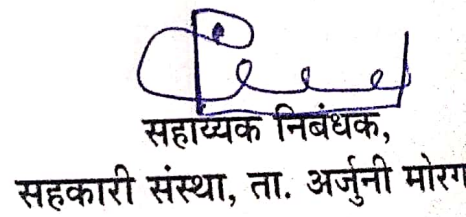 सहाय्यक निबंधक,
सहकारी संस्था, ता. अर्जुनी मोरग